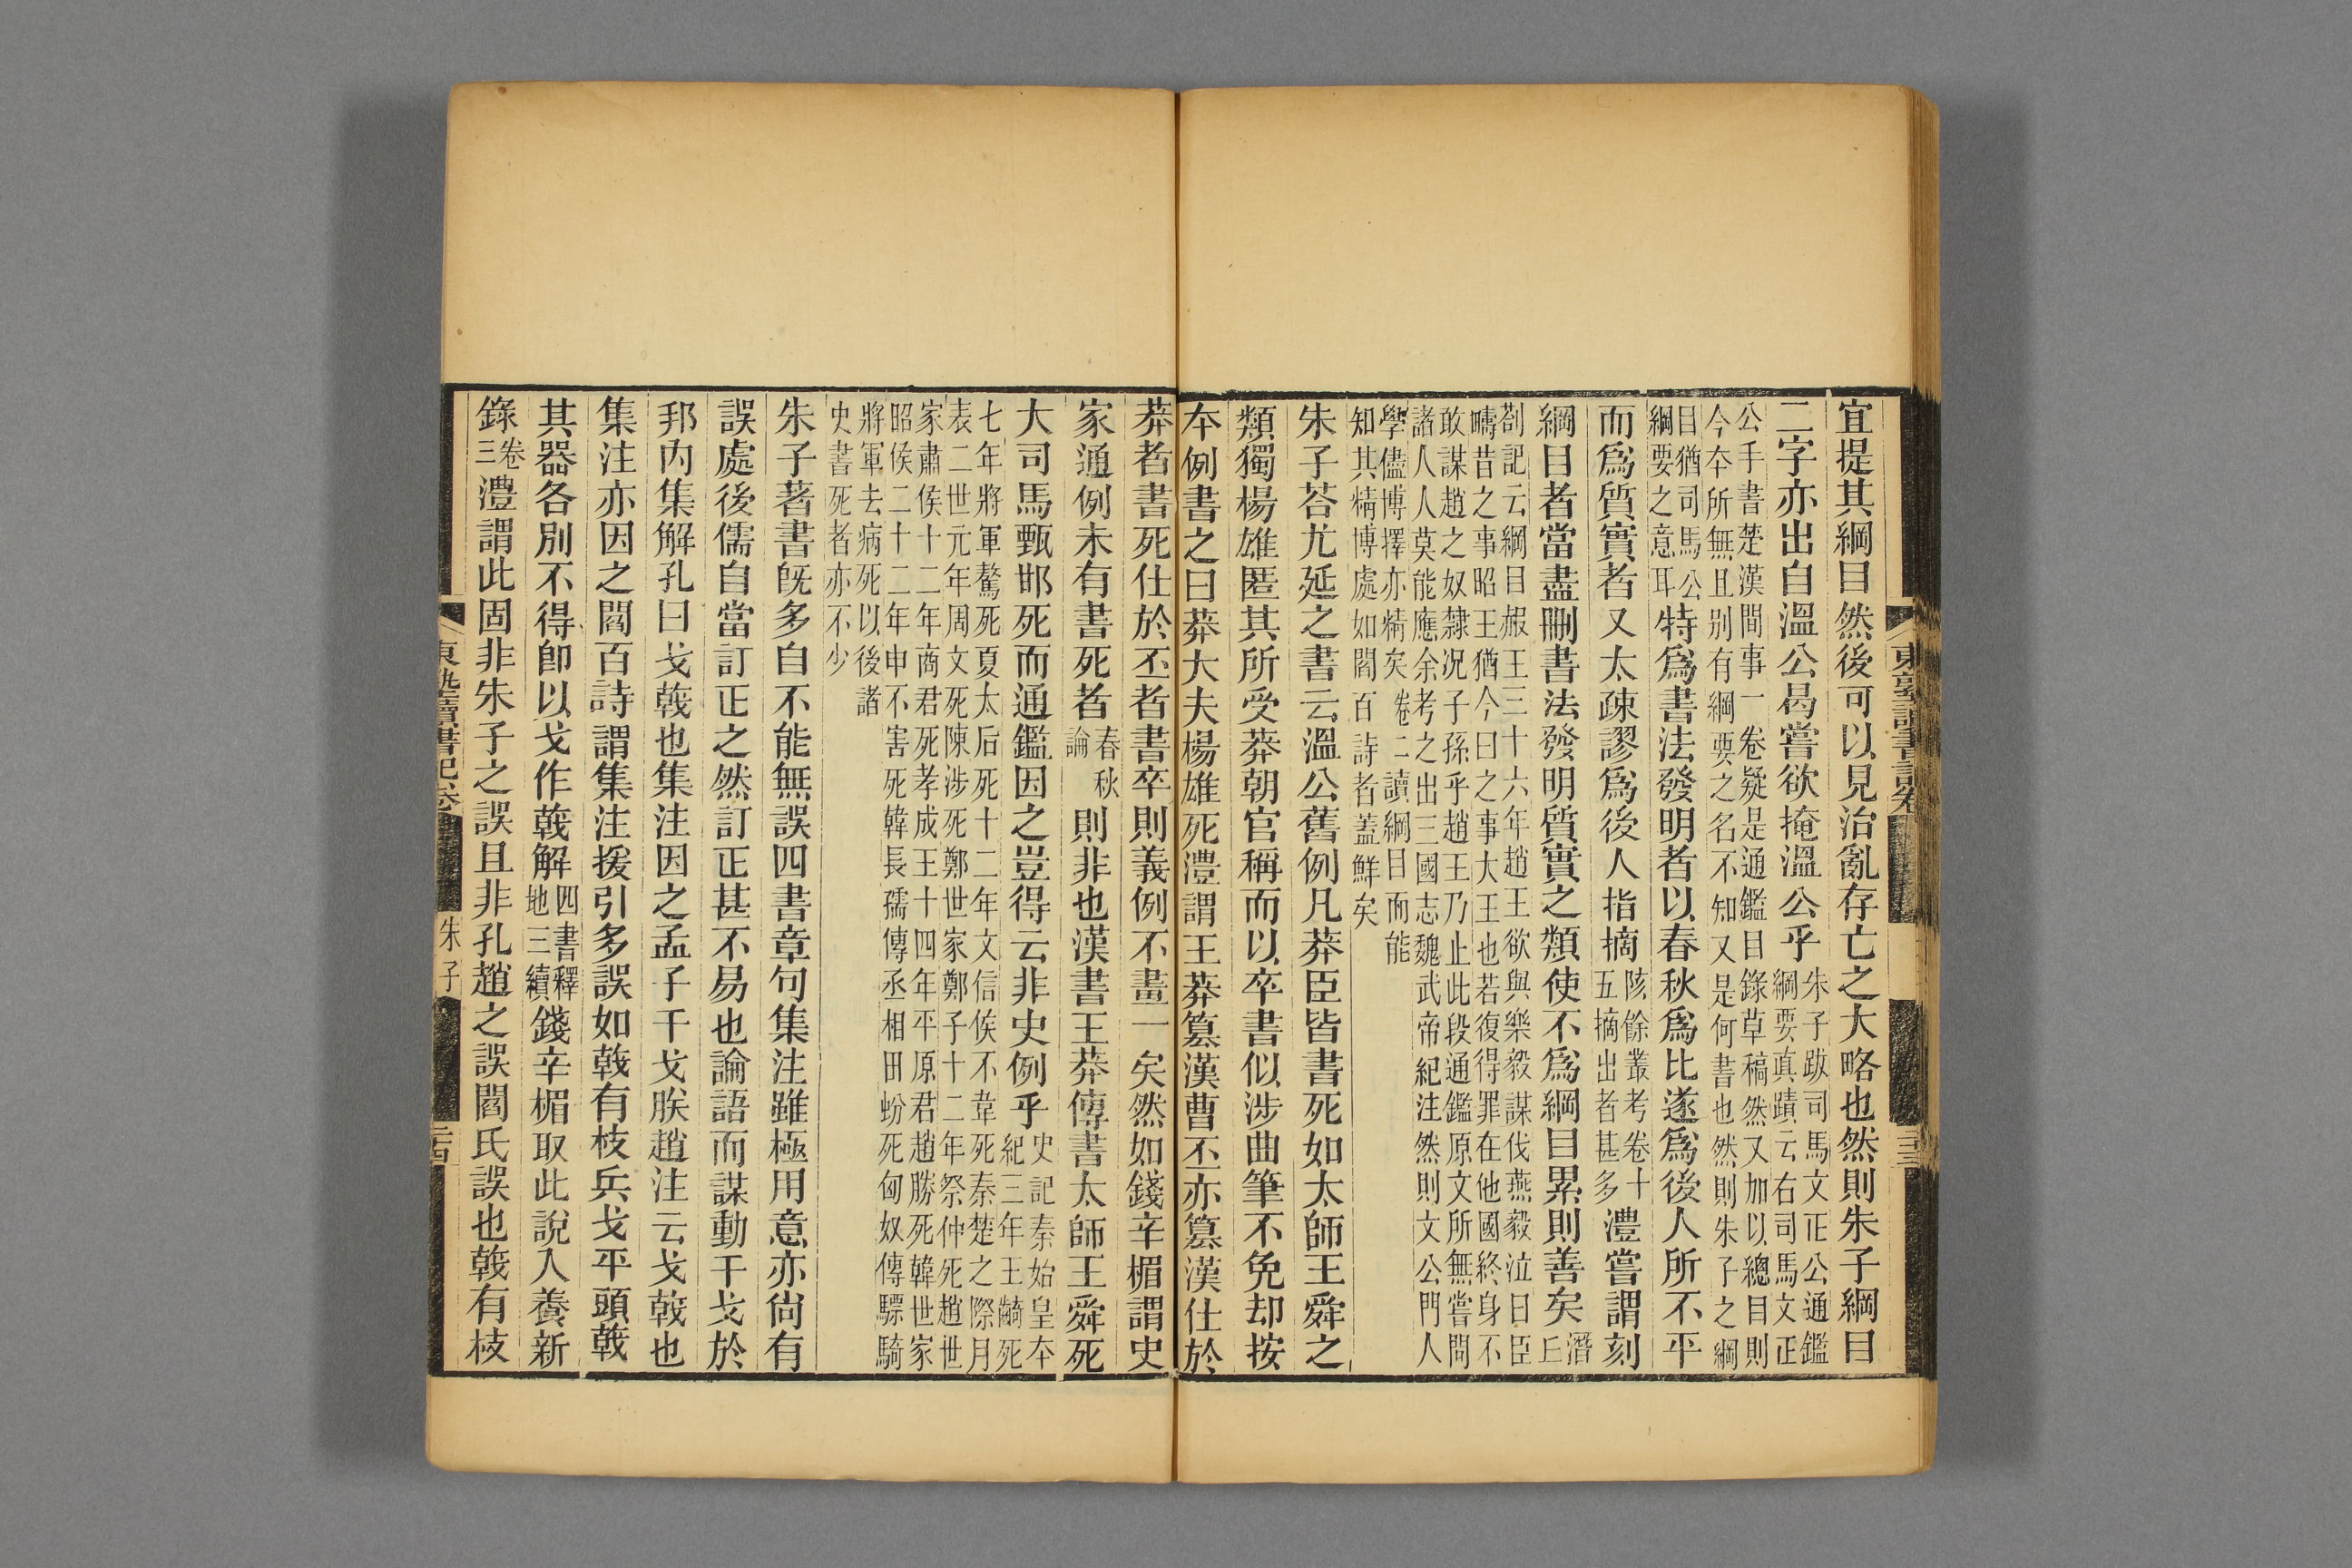 宜提其綱目然後可以見治亂存亡之大略也然則朱子綱目
二字亦出自溫公曷嘗欲掩溫公乎朱子跋司馬文正公通鑑綱要真蹟云右司馬文正
公手書楚漢間事一卷疑是通鑑目錄草稿然又加以總目則今本所無且別有綱要之名不知又是何書也然則朱子之綱
目猶司馬公綱要之意耳特爲書法發明者以春秋爲比遂爲後人所不平
而爲質實者又太疎謬爲後人指摘陔餘叢考卷十五摘出者甚多澧嘗謂刻
綱目者當盡刪書法發明質實之類使不爲綱目累則善矣潛丘
劄記云綱目赧王三十六年趙王欲與樂毅謀伐燕毅泣曰臣疇昔之事昭王猶今日之事大王也若復得罪在他國終身不
敢謀趙之奴隸況子孫乎趙王乃止此段通鑑原文所無嘗問諸人人莫能應余考之出三國志魏武帝紀注然則文公門人
學儘博擇亦精矣卷二讀綱目而能知其精博處如閻百詩者蓋鮮矣
朱子荅尤延之書云溫公舊例凡莽臣皆書死如太師王舜之
類獨楊雄匿其所受莽朝官稱而以卒書似涉曲筆不免却按
本例書之曰莽大夫楊雄死澧謂王莽篡漢曹丕亦篡漢仕於
莽者書死仕於丕者書卒則義例不畫一矣然如錢辛楣謂史
家通例未有書死者春秋論則非也漢書王莽傳書太師王舜死
大司馬甄邯死而通鑑因之豈得云非史例乎史記秦始皇本紀三年王齮死
七年將軍驁死夏太后死十二年文信侯不韋死秦楚之際月表二世元年周文死陳涉死鄭世家鄭子十二年祭仲死趙世
家肅侯十二年商君死孝成王十四年平原君趙勝死韓世家昭侯二十二年申不害死韓長孺傳丞相田蚡死匈奴傳驃騎
將軍去病死以後諸史書死者亦不少
朱子著書旣多自不能無誤四書章句集注雖極用意亦尙有
誤處後儒自當訂正之然訂正甚不易也論語而謀動干戈於
邦內集解孔曰戈戟也集注因之孟子干戈朕趙注云戈戟也
集注亦因之閻百詩謂集注援引多誤如戟有枝兵戈平頭戟
其器各別不得卽以戈作戟解四書釋地三續錢辛楣取此說入養新
錄卷三澧謂此固非朱子之誤且非孔趙之誤閻氏誤也戟有枝
東塾讀書記卷
朱子